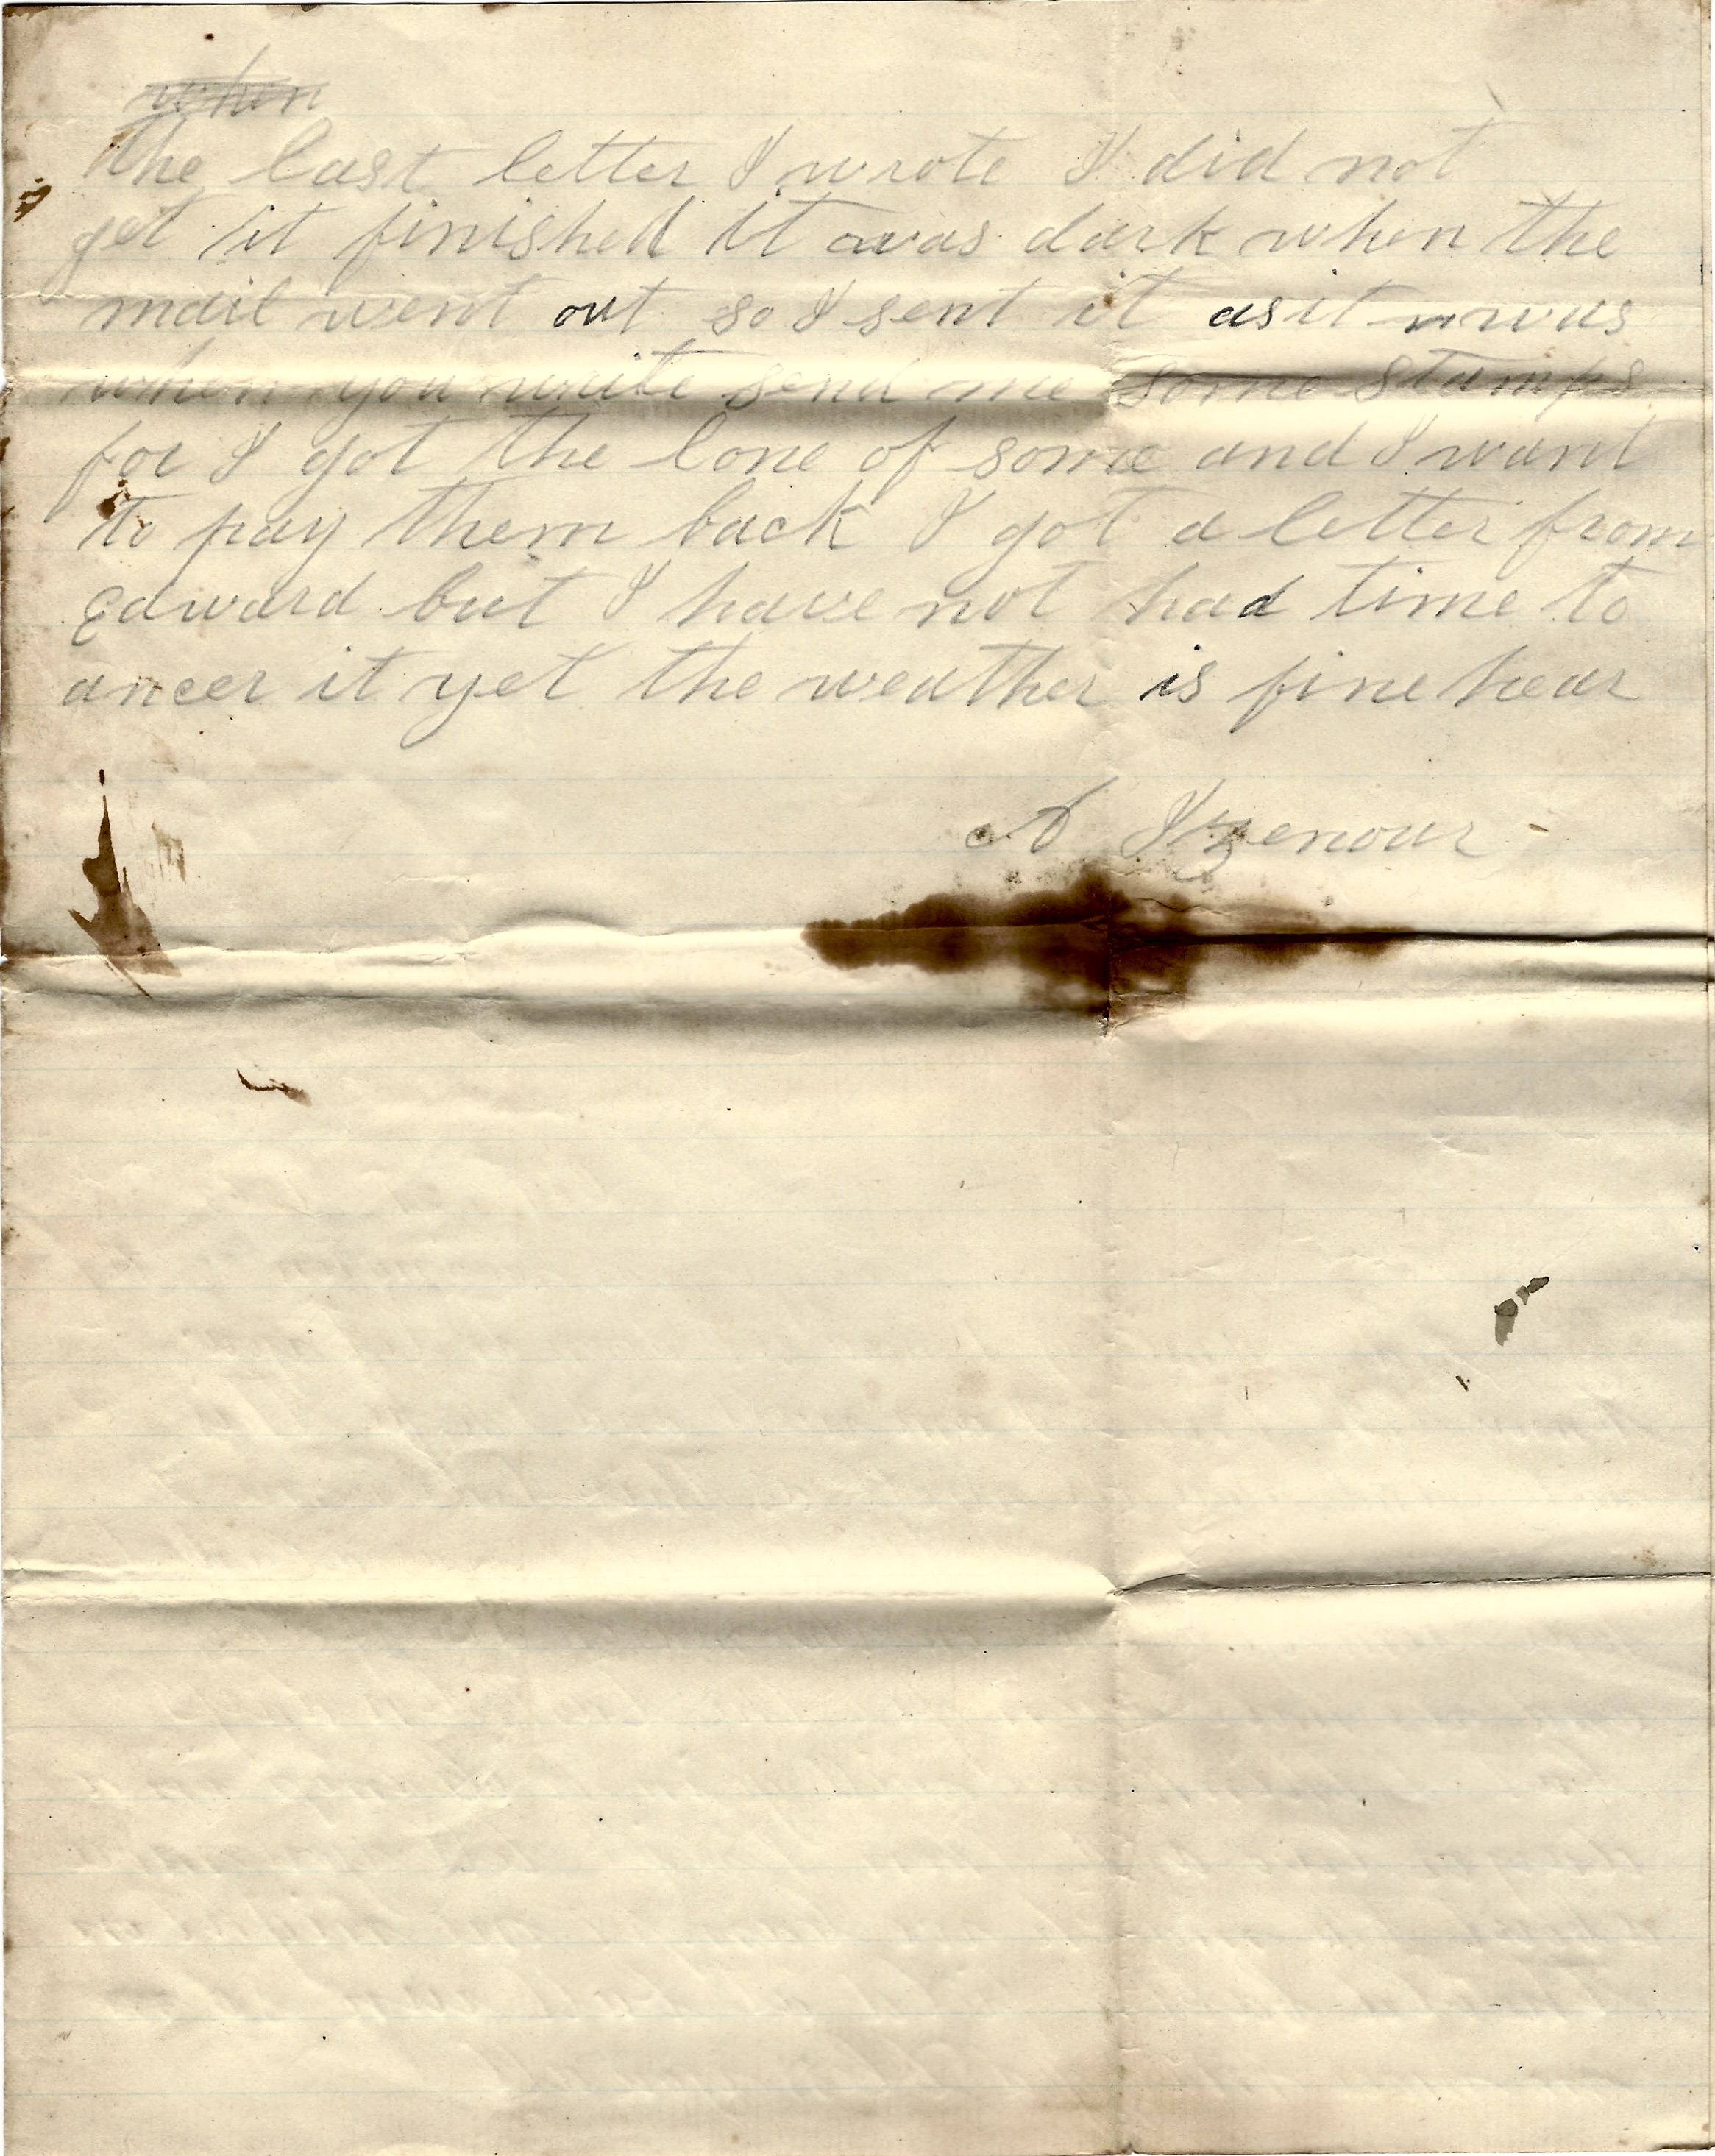 when
the last letter I wrote I did not
get it finished it was dark when the
mail went out so I sent it as it was
when you write send me some stamps
for I got the lone of some and I want
to pay them back I got a letter from
Edward but I have not had time to
ancer it yet the weather is fine hear
A Izenour